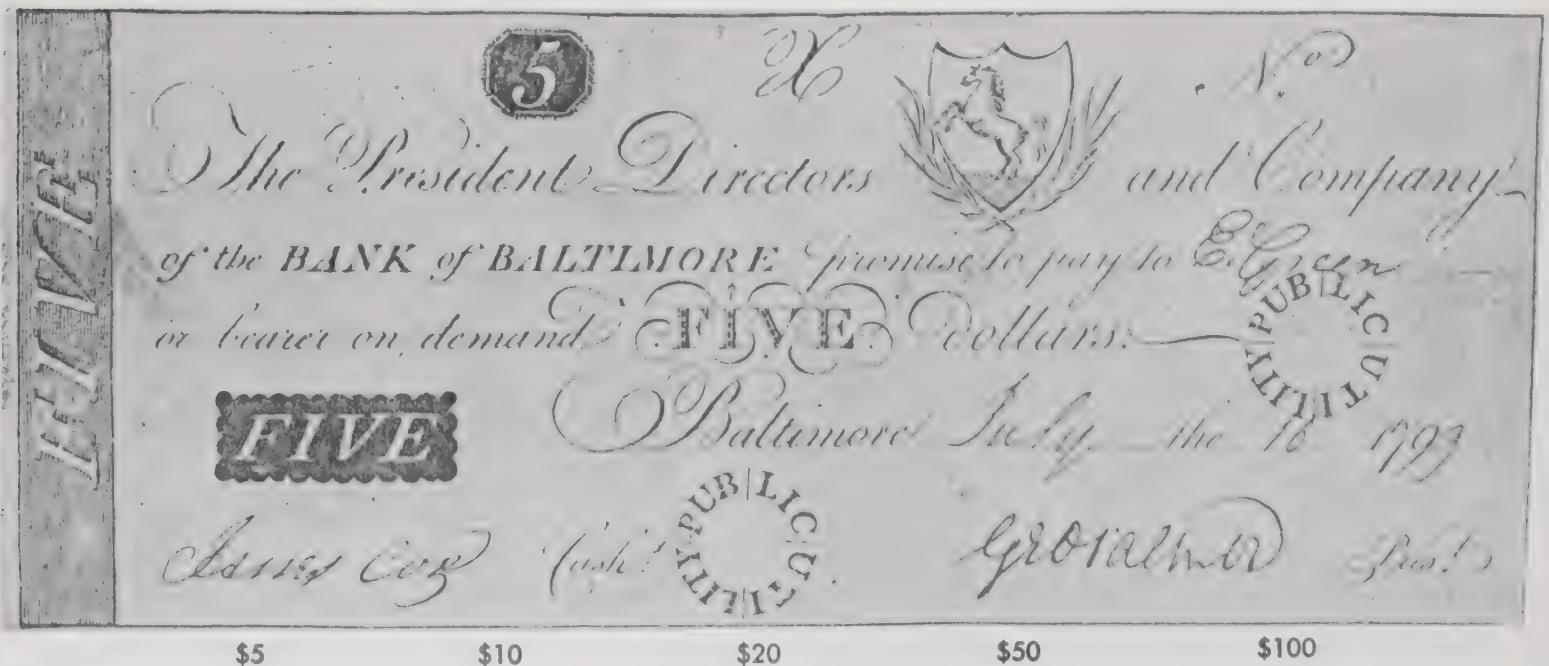 FIVE
5 X No
The President Directors and Company
of the BANK of BALTIMORE promise to pay to E. Green
or bearer on demand FIVE Dollars.
PUBLIC UTILITY
FIVE
Baltimore July the 16 1799
James Cox Cashr
PUBLIC UTILITY
Prest
$5 $10 $20 $50 $100